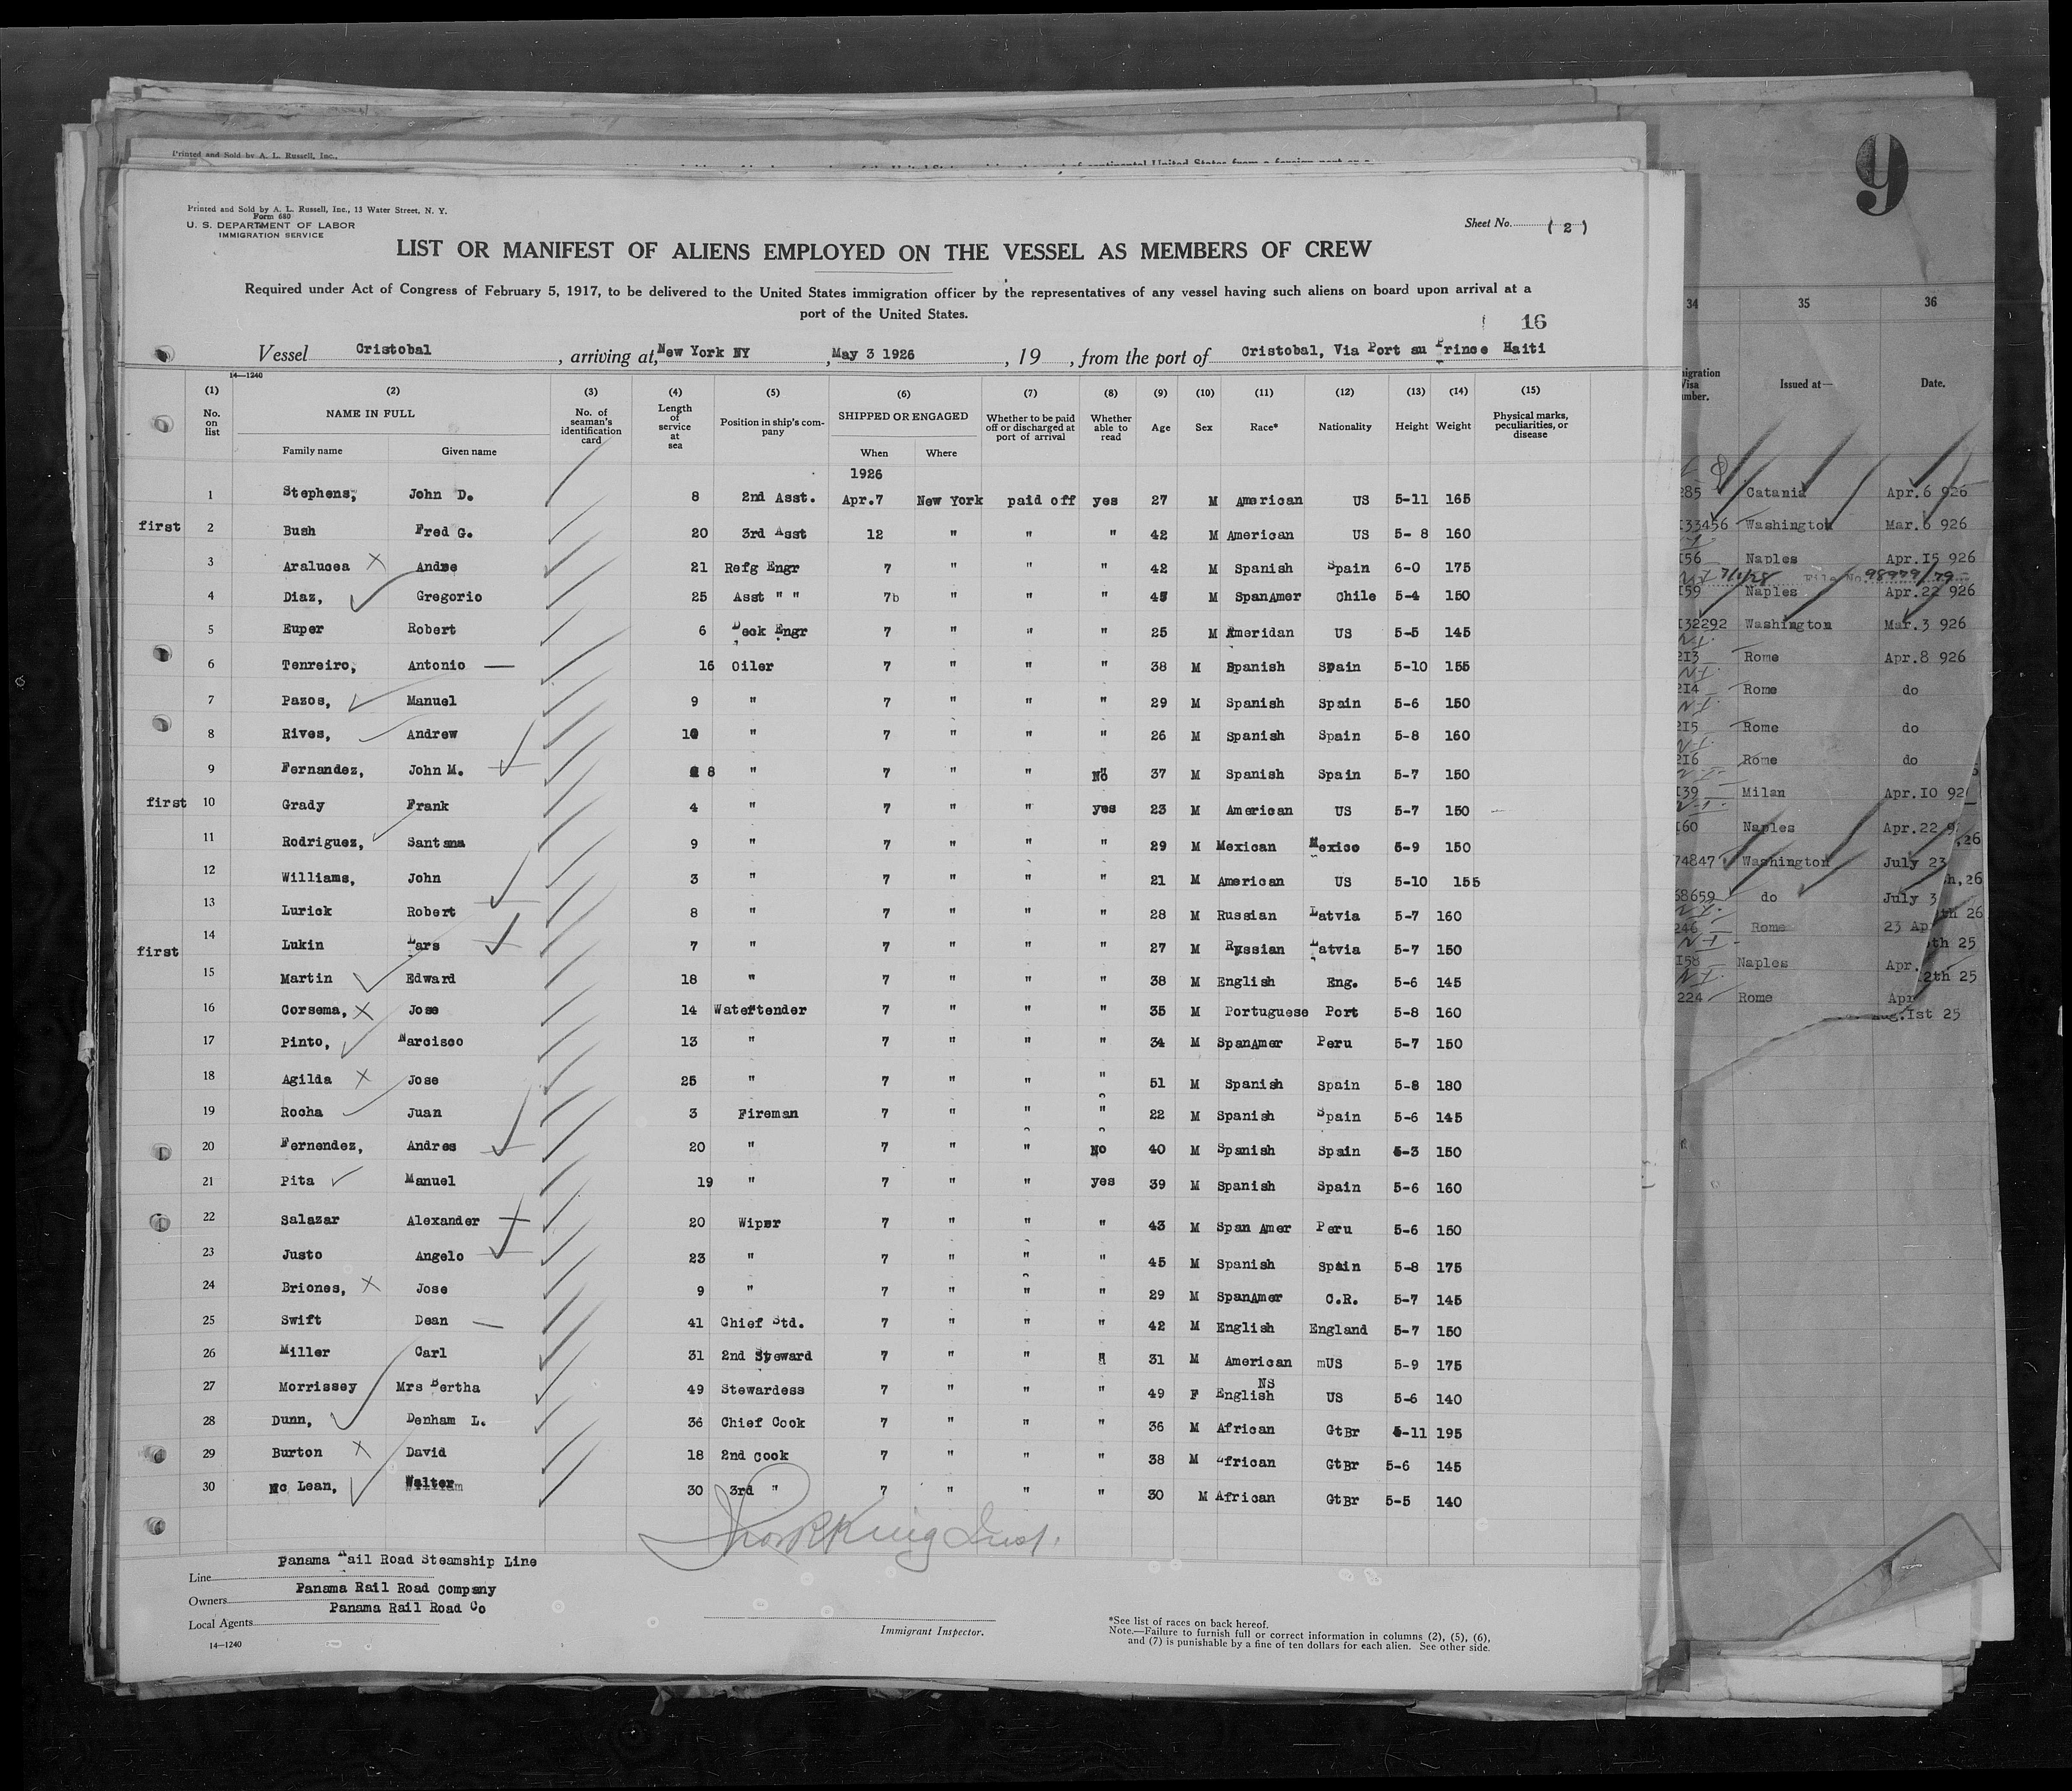 Printed and Sold by A. L. Russell, Inc.,
9
Printed and Sold by A. L. Russell, Inc., 13 Water Street, N. Y.
Form 680
U. S. DEPARTMENT OF LABOR
IMMIGRATION SERVICE
Sheet No. ( 2 )
LIST OR MANIFEST OF ALIENS EMPLOYED ON THE VESSEL AS MEMBERS OF CREW
Required under Act of Congress of February 5, 1917, to be delivered to the United States immigration officer by the representatives of any vessel having such aliens on board upon arrival at a
port of the United States.
16
Vessel Cristobal, arriving at, New York NY, May 3 1926, 19 , from the port of Cristobal, Via Port au Prince Haiti
14—1240
(1) (2) (3) (4) (5) (6) (7) (8) (9) (10) (11) (12) (13) (14) (15)
No. on list NAME IN FULL No. of seaman's identification card Length of service at sea Position in ship's company SHIPPED OR ENGAGED Whether to be paid off or discharged at port of arrival Whether able to read Age Sex Race* Nationality Height Weight Physical marks, peculiarities, or disease
Family name Given name When Where
1926
1 Stephens, John D. 8 2nd Asst. Apr.7 New York paid off yes 27 M American US 5-11 165
first 2 Bush Fred G. 20 3rd Asst 12 " " " 42 M American US 5- 8 160
3 Aralucea Andre 21 Refg Engr 7 " " " 42 M Spanish Spain 6-0 175
4 Diaz, Gregorio 25 Asst " " 7b " " " 45 M SpanAmer Chile 5-4 150
5 Euper Robert 6 Deck Engr 7 " " " 25 M Ameridan US 5-5 145
6 Tenreiro, Antonio 16 Oiler 7 " " " 38 M Spanish Spain 5-10 155
7 Pazos, Manuel 9 " 7 " " " 29 M Spanish Spain 5-6 150
8 Rives, Andrew 10 " 7 " " " 26 M Spanish Spain 5-8 160
9 Fernandez, John M. 8 " 7 " " No 37 M Spanish Spain 5-7 150
first 10 Grady Frank 4 " 7 " " yes 23 M American US 5-7 150
11 Rodriguez, Santana 9 " 7 " " " 29 M Mexican Mexico 5-9 150
12 Williams, John 3 " 7 " " " 21 M American US 5-10 155
13 Lurick Robert 8 " 7 " " " 28 M Russian Latvia 5-7 160
first 14 Lukin Lars 7 " 7 " " " 27 M Russian Latvia 5-7 150
15 Martin Edward 18 " 7 " " " 38 M English Eng. 5-6 145
16 Corsema, Jose 14 Watertender 7 " " " 35 M Portuguese Port 5-8 160
17 Pinto, Narcisco 13 " 7 " " " 34 M SpanAmer Peru 5-7 150
18 Agilda Jose 25 " 7 " " " 51 M Spanish Spain 5-8 180
19 Rocha Juan 3 Fireman 7 " " " 22 M Spanish Spain 5-6 145
20 Fernendez, Andres 20 " 7 " " No 40 M Spanish Spain 5-3 150
21 Pita Manuel 19 " 7 " " yes 39 M Spanish Spain 5-6 160
22 Salazar Alexander 20 Wiper 7 " " " 43 M Span Amer Peru 5-6 150
23 Justo Angelo 23 " 7 " " " 45 M Spanish Spain 5-8 175
24 Briones, Jose 9 " 7 " " " 29 M SpanAmer C.R. 5-7 145
25 Swift Dean 41 Chief Std. 7 " " " 42 M English England 5-7 150
26 Miller Carl 31 2nd Steward 7 " " " 31 M American mUS 5-9 175
27 Morrissey Mrs Bertha 49 Stewardess 7 " " " 49 F English NS US 5-6 140
28 Dunn, Denham L. 36 Chief Cook 7 " " " 36 M African GtBr 5-11 195
29 Burton David 18 2nd cook 7 " " " 38 M African GtBr 5-6 145
30 Mc Lean, Walter 30 3rd " 7 " " " 30 M African GtBr 5-5 140
Line Panama Rail Road Steamship Line
Owners Panama Rail Road Company
Local Agents Panama Rail Road Co
14—1240
Immigrant Inspector.
*See list of races on back hereof.
Note.—Failure to furnish full or correct information in columns (2), (5), (6),
and (7) is punishable by a fine of ten dollars for each alien. See other side.
34 35 36
Issued at— Date.
285 Catania Apr.6 926
I33456 Washington Mar.6 926
I56 Naples Apr.I5 926
File No. 98979/79
I59 Naples Apr.22 926
I32292 Washington Mar.3 926
2I3 Rome Apr.8 926
2I4 Rome do
2I5 Rome do
2I6 Rome do
I39 Milan Apr.I0 92
I60 Naples Apr.22 9 ,26
74847 Washington July 23
68659 do July 3
246 Rome 23 Ap
th 25
I58 Naples Apr.
2th 25
224 Rome Apr
Aug.Ist 25